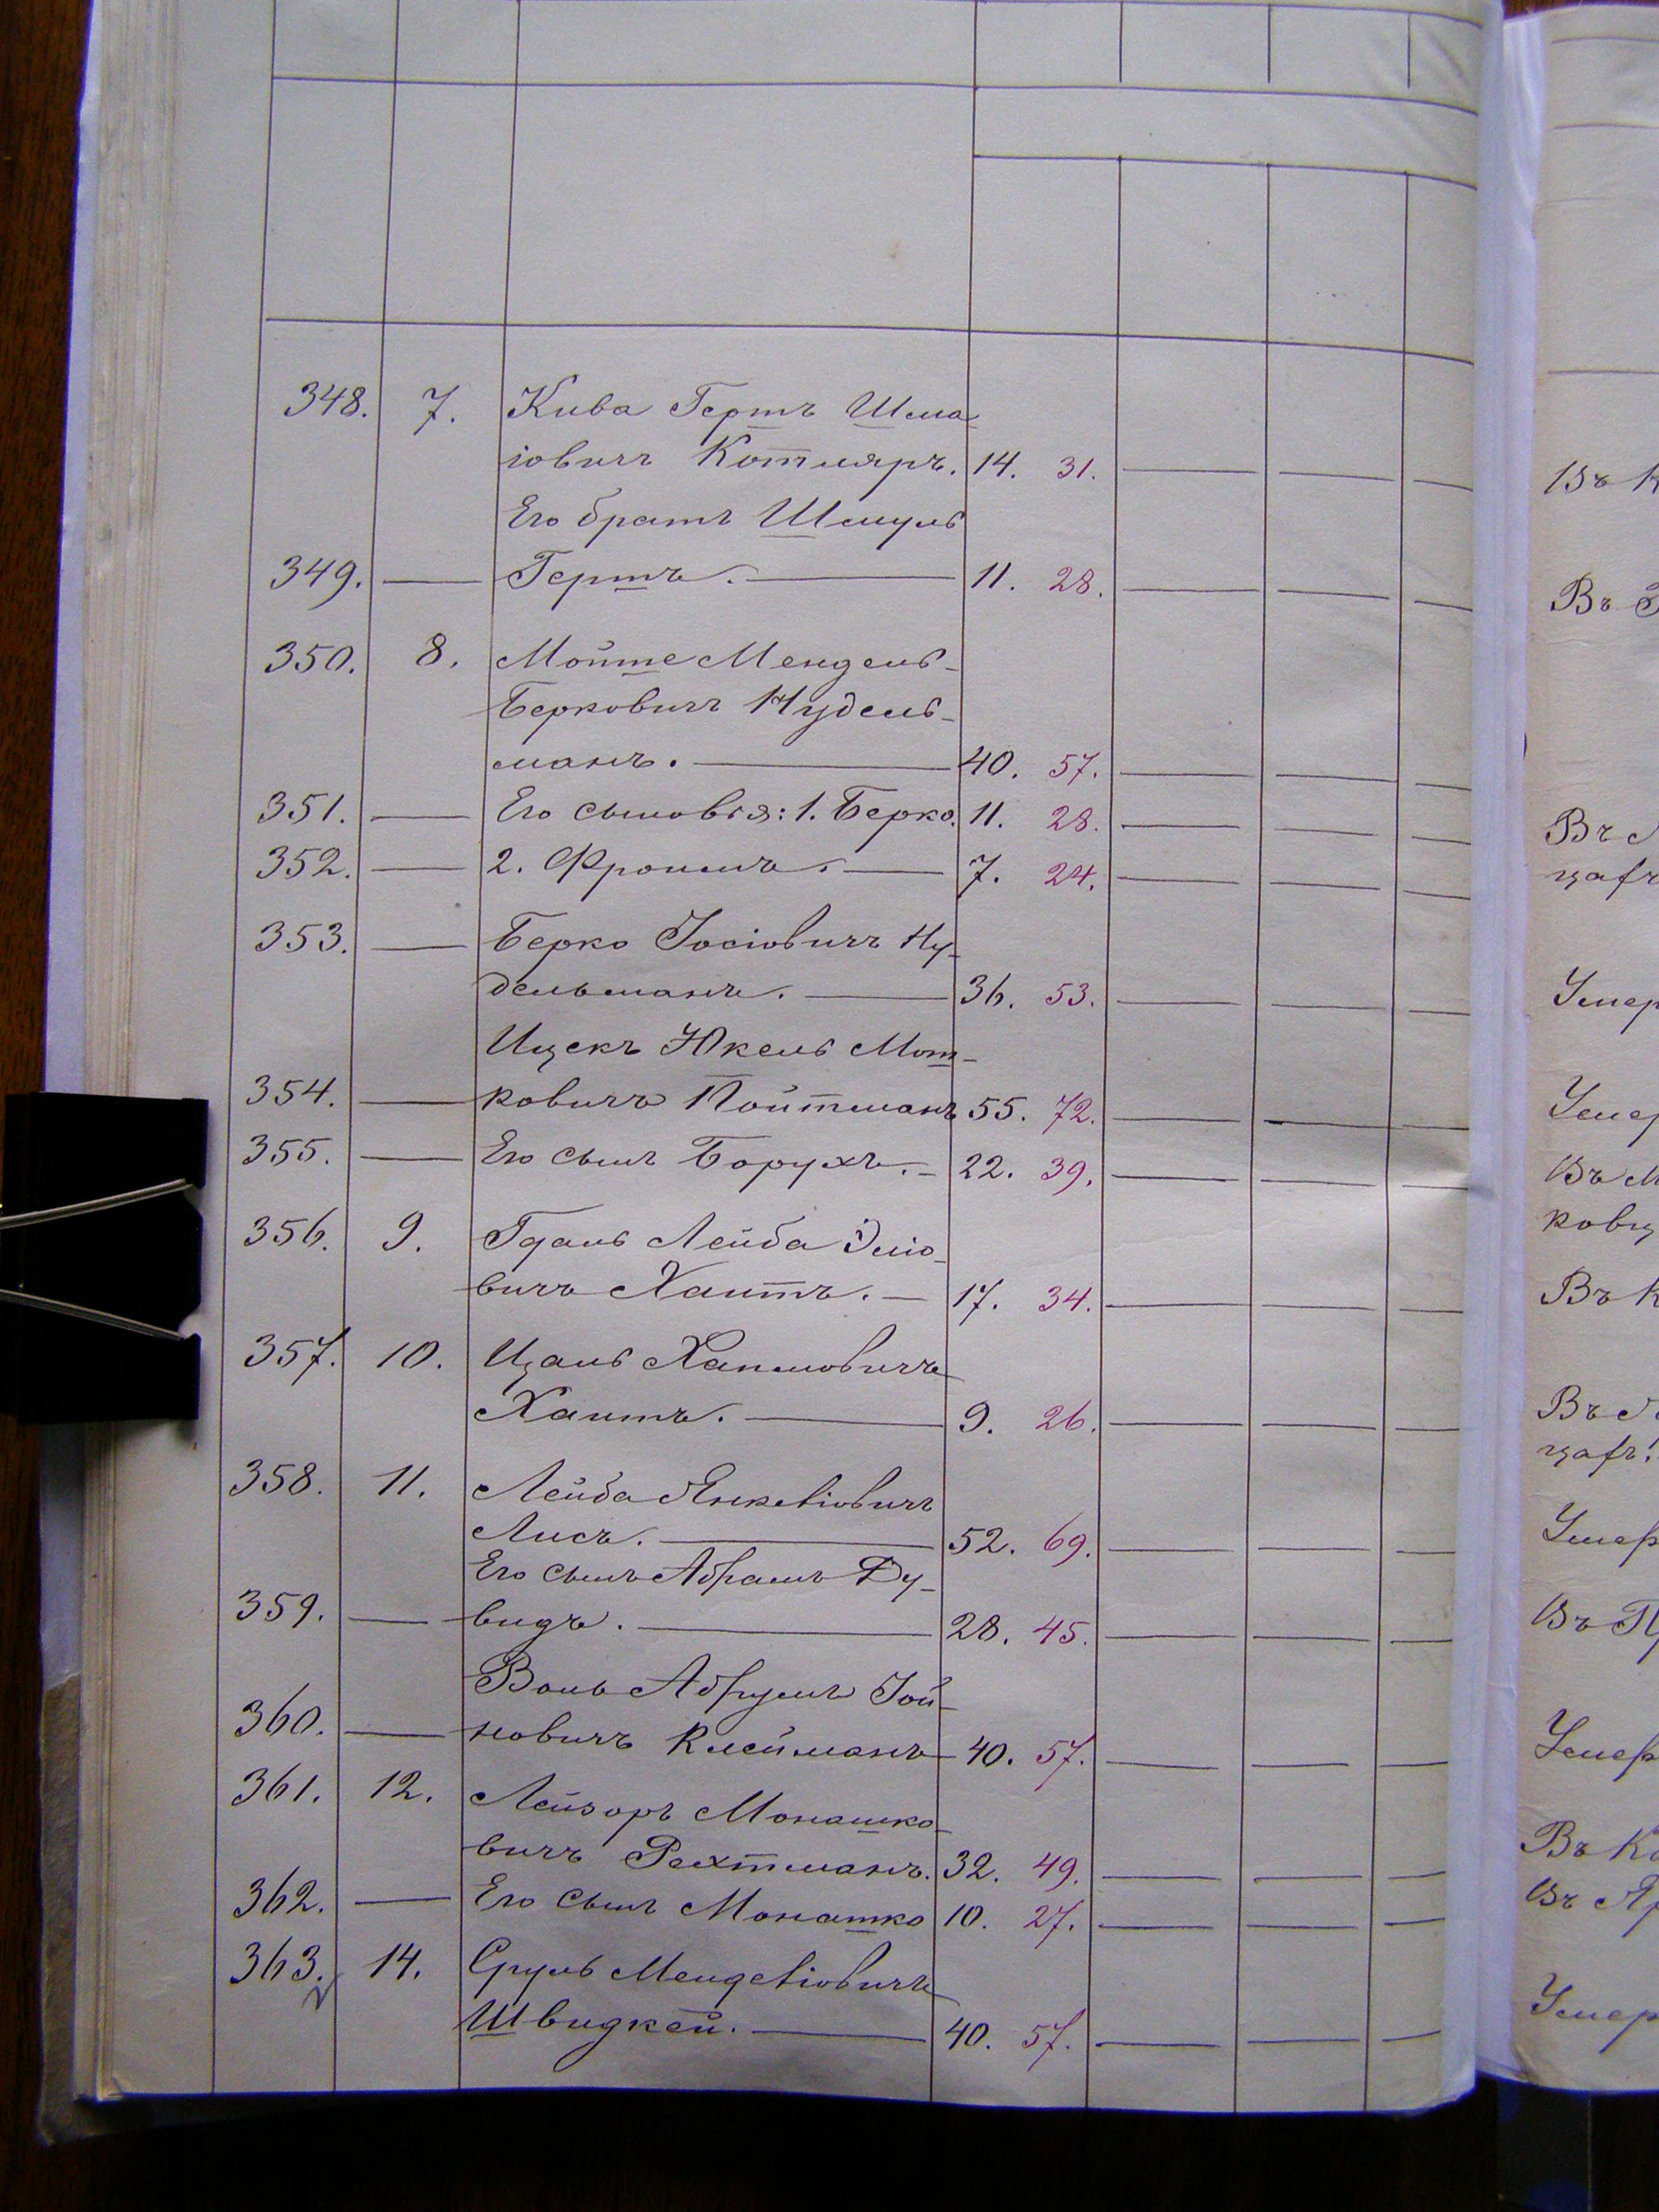 348. 7. Кива Гершъ Шма
іовичъ Котляръ. 14. 31.
Его братъ Шмуль
349. Гершъ. 11. 28.
350. 8. Мойше Мендель
Берковичъ Нудель-
манъ. 40. 57.
351. Его сыновья: 1. Берко. 11. 28.
352. 2. Фроимъ. 7. 24.
353. Берко Іосіовичъ Ну-
дельманъ. 36. 53.
Ицекъ Юкель Мош-
354. ковичъ Пойтманъ 55. 72.
355. Его сынъ Борухъ. 22. 39.
356. 9. Гдаль Лейба Эліо-
вичъ Хаитъ. 17. 34.
357. 10. Цаль Хаимовичъ
Хаитъ. 9. 26.
358. 11. Лейба Янкеліовичъ
Лисъ. 52. 69.
Его сынъ Абрамъ Ду-
359. видъ. 28. 45.
Воль Абрумъ Іой-
360. новичъ Клейманъ 40. 57.
361. 12. Лейзоръ Монашко-
вичъ Рехтманъ. 32. 49.
362. Его сынъ Монашко 10. 27.
363. 14. Сруль Менделіовичъ
Швидкей. 40. 57.
Въ К
Въ
Въ
Умер
Умер
Въ М
Въ К
Въ
Умер
Въ
Умер
Въ Ко
Въ Яр
Умер